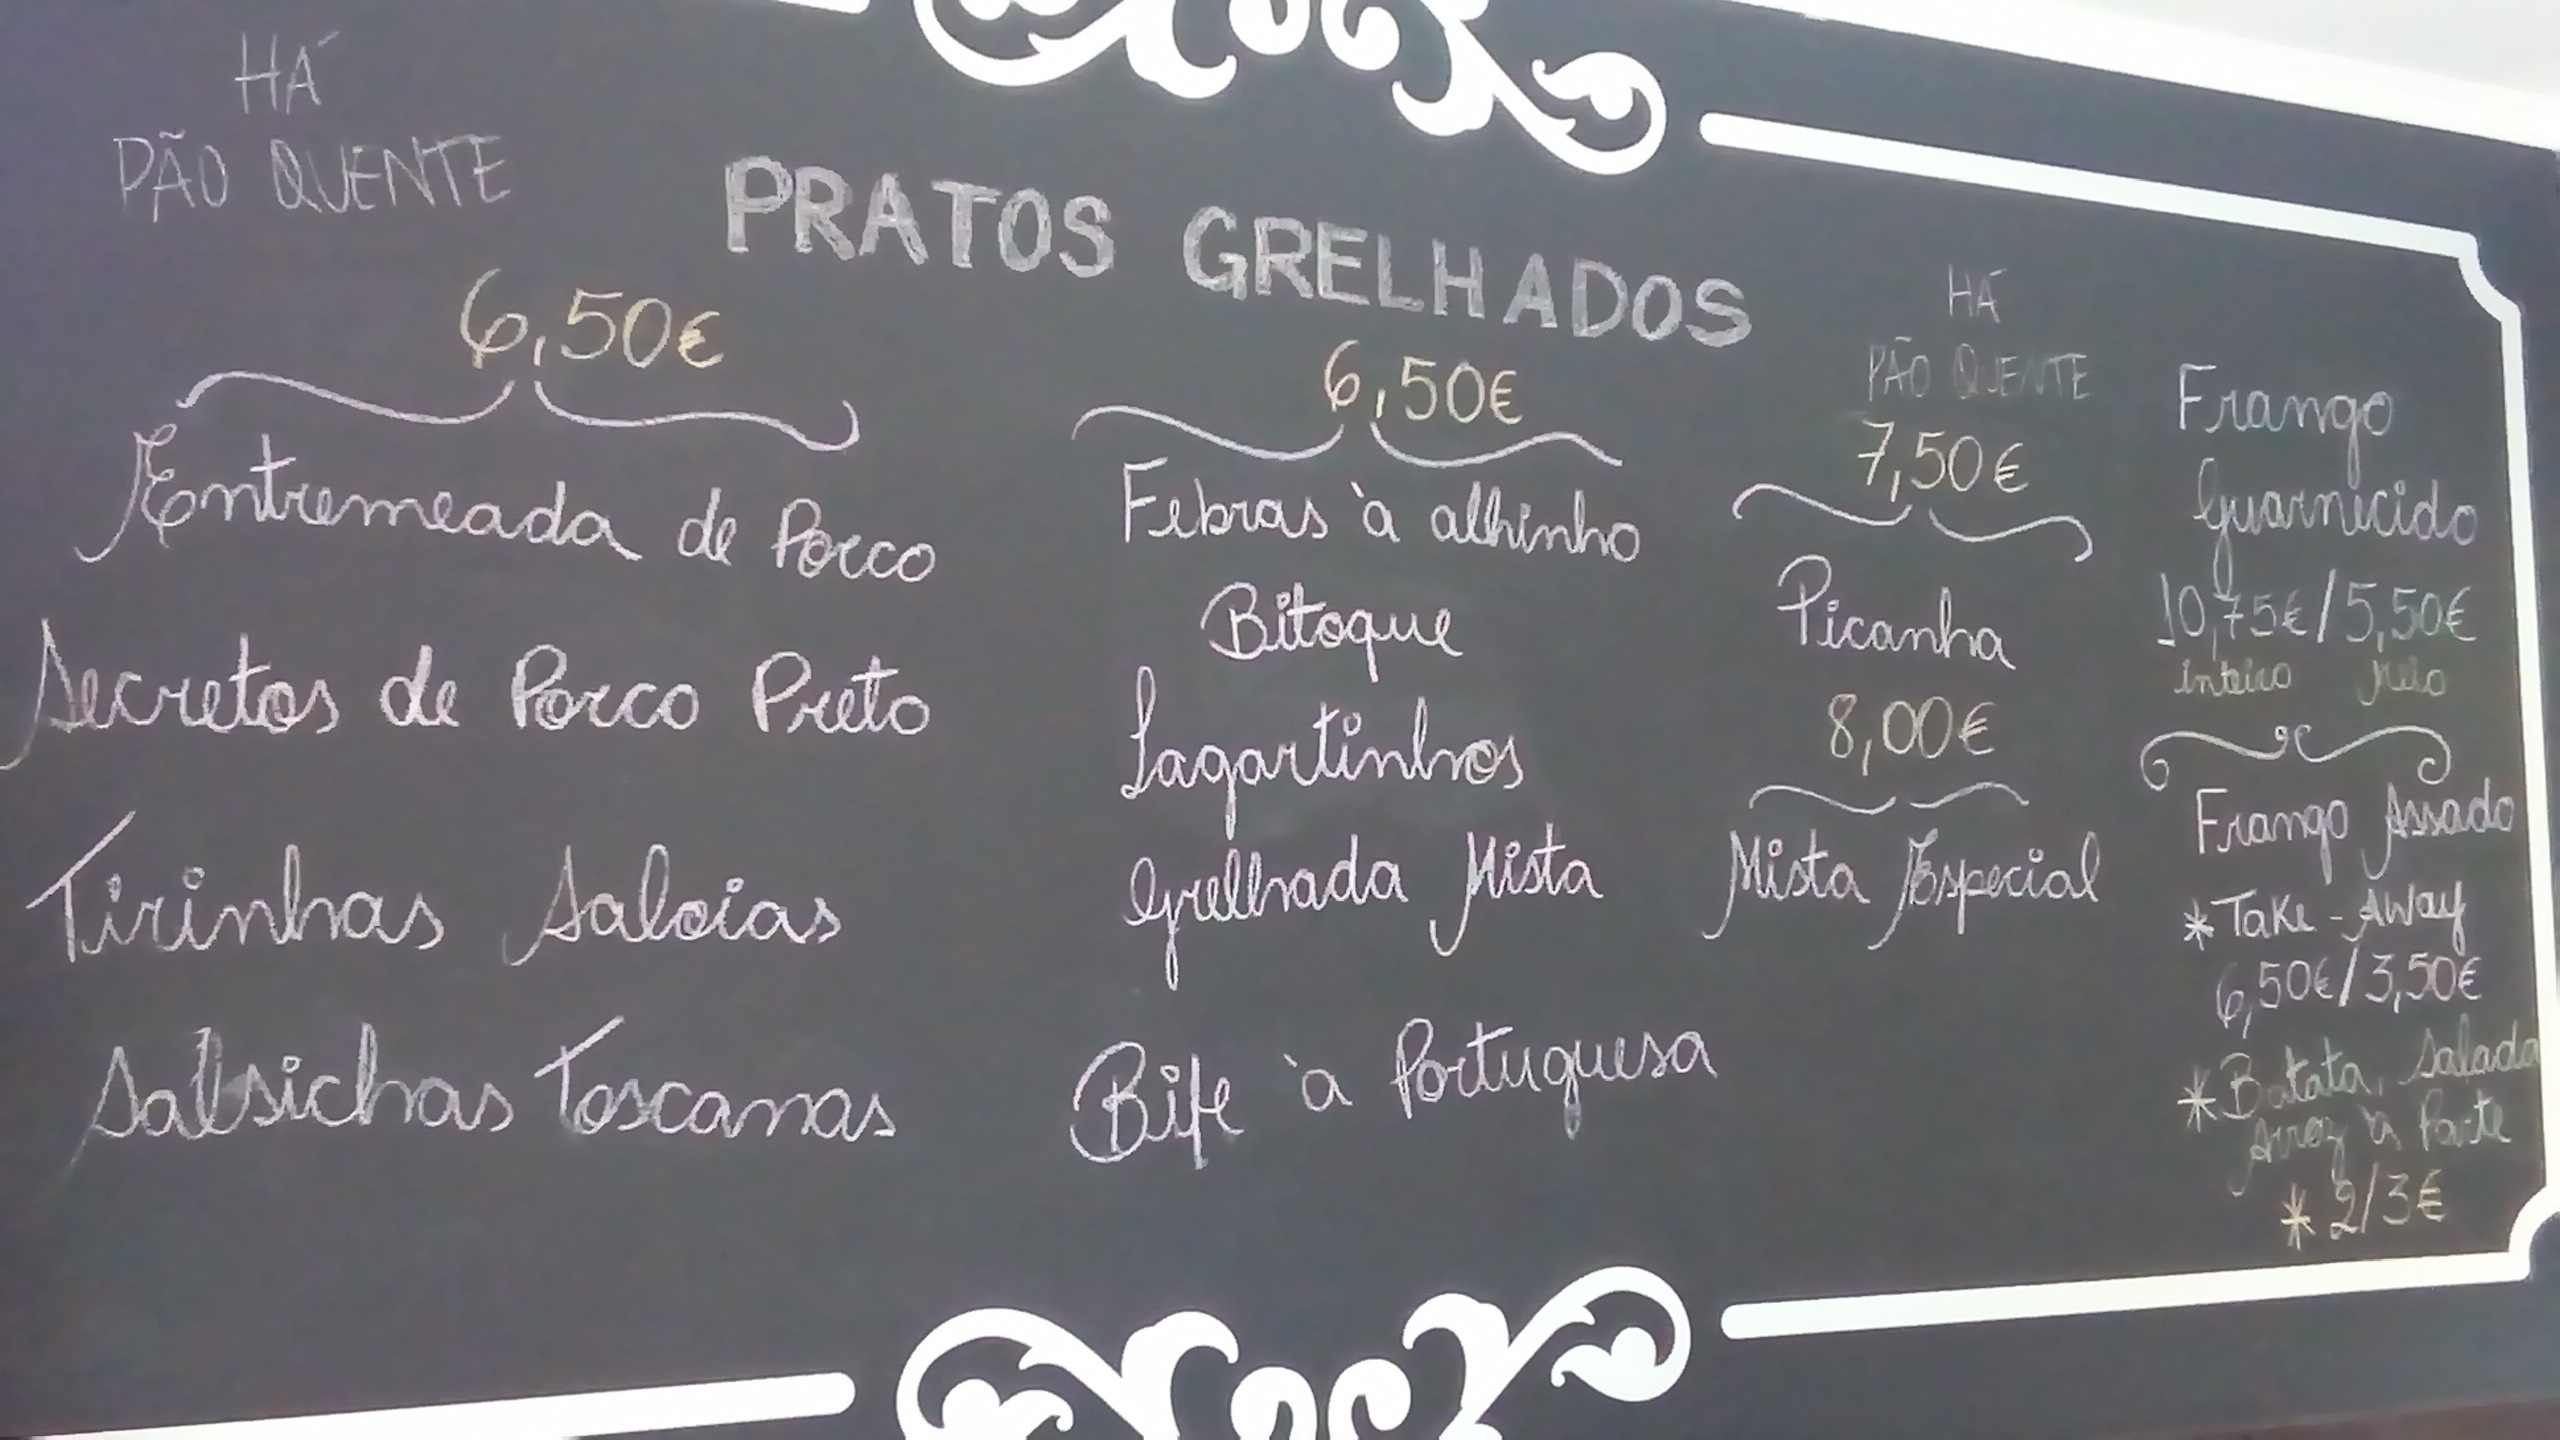 HÁ
PÃO QUENTE
PRATOS GRELHADOS
6,50€
Entremeada de Porco
Secretos de Porco Preto
Tirinhas Saloias
Salsichas Toscanas
6,50€
Febras à alhinho
Bitoque
Lagartinhos
Grelhada Mista
Bife à Portuguesa
HÁ
PÃO QUENTE
7,50€
Picanha
8,00€
Mista Especial
Frango
Guarnecido
10,75€/5,50€
inteiro meio
Frango Assado
*Take-Away
6,50€/3,50€
*Batata, Salada
Arroz à Parte
* 2/3€